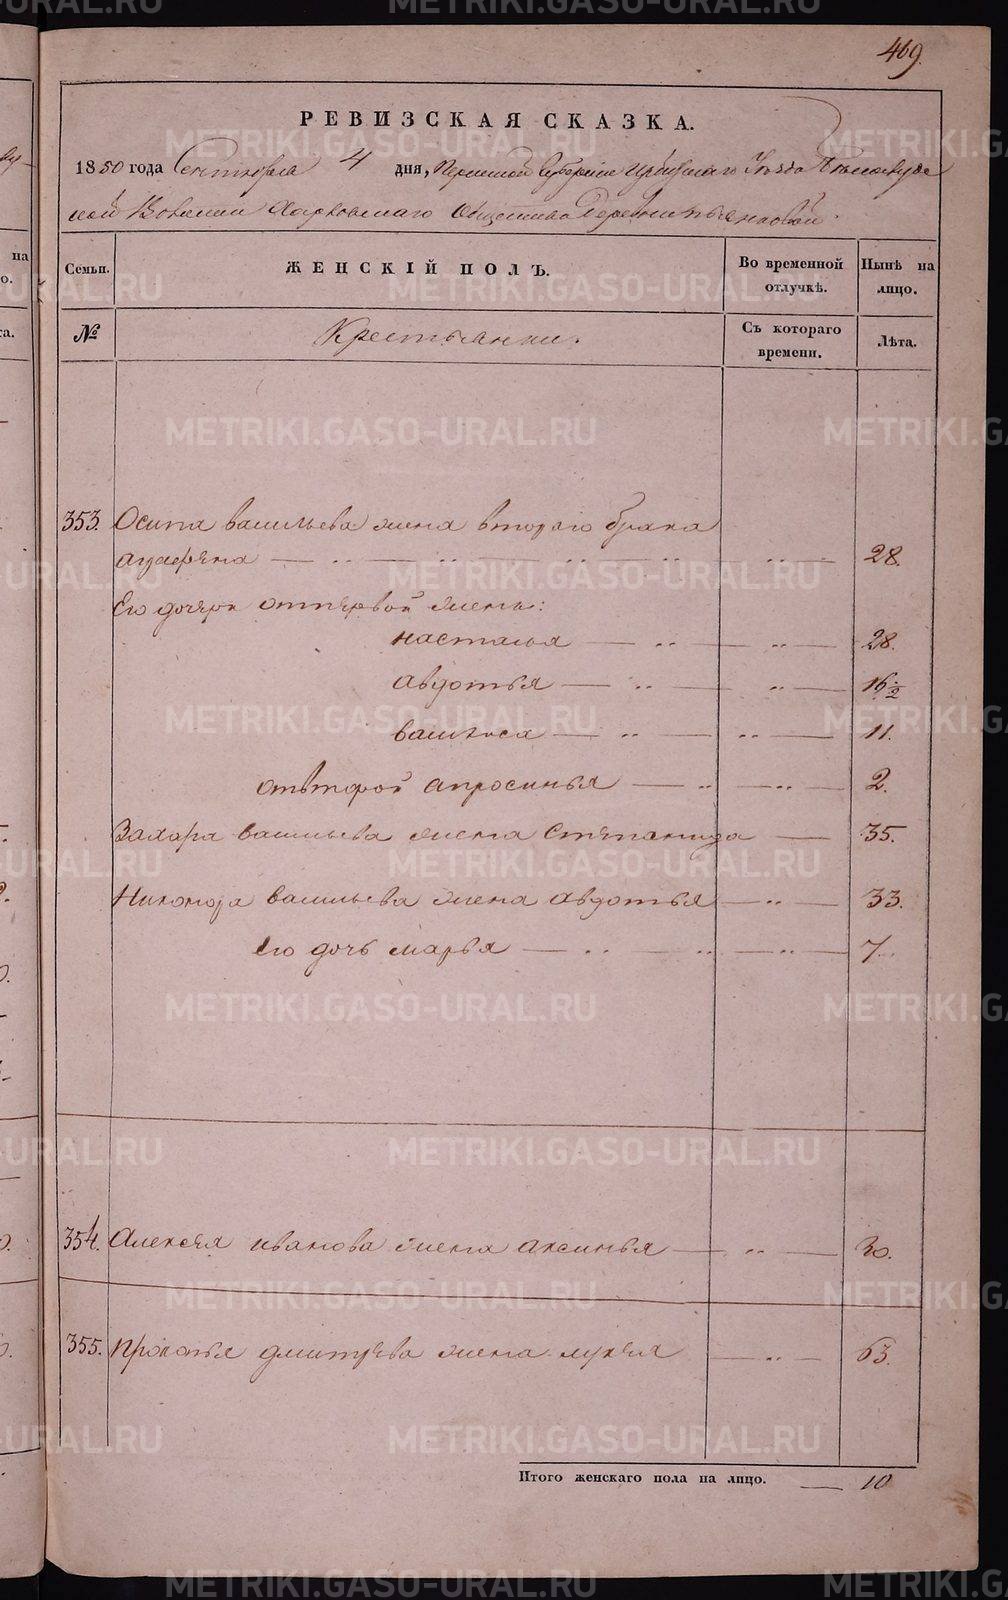 469.
РЕВИЗСКАЯ СКАЗКА.
1850 года Сентября 4 дня, Пермской Губернии Ирбитскаго Уѣзда Бѣлослудс
кой Волости Харловскаго Общества Деревни
Семьи. ЖЕНСКІЙ ПОЛЪ. Во временной отлучкѣ. Нынѣ на лицо.
№ Крестьянки. Съ котораго времени. Лѣта.
353. Осипа васильева жена втораго брака
агафѣна 28.
Его дочери отпервой жены:
настасья 28.
авдотья 16½
василиса 11.
отвторой апросинья 2.
Захара васильева жена Степанида 35.
Никонора васильева жена авдотья 33.
Его дочь марья 7.
354. Алексѣя иванова жена аксинья 30.
355. Прокопья дмитрѣва жена лукѣя 63.
Итого женскаго пола на лицо. 10
METRIKI.GASO-URAL.RU